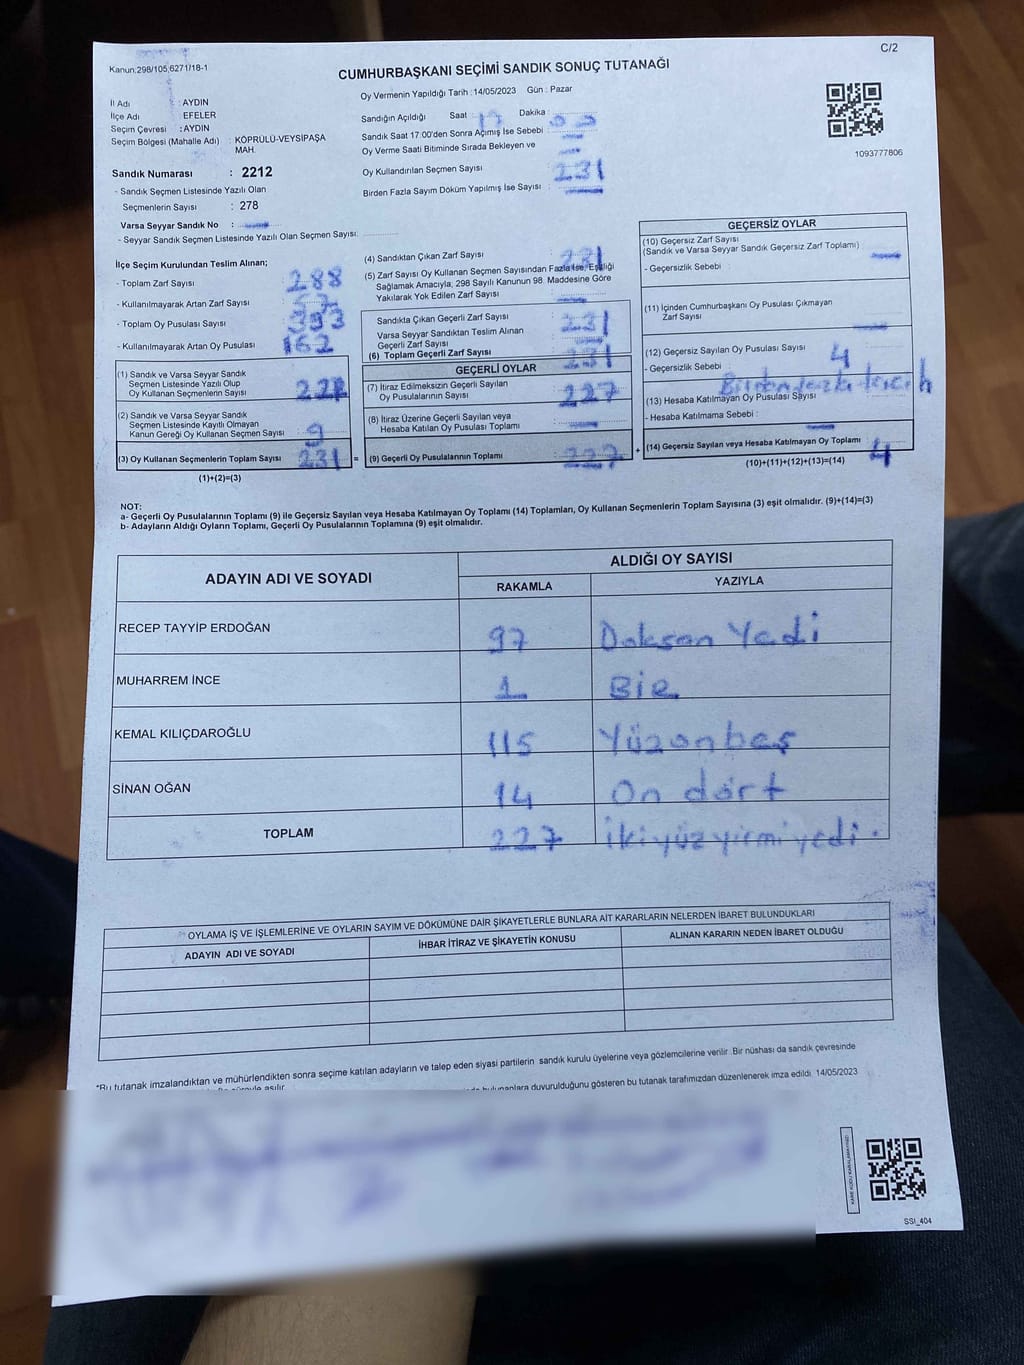 C/2
Kanun:298/105,6271/18-1
CUMHURBAŞKANI SEÇİMİ SANDIK SONUÇ TUTANAĞI
Oy Vermenin Yapıldığı Tarih :14/05/2023 Gün : Pazar
İl Adı : AYDIN
İlçe Adı EFELER
Seçim Çevresi : AYDIN
Seçim Bölgesi (Mahalle Adı) : KÖPRÜLÜ-VEYSİPAŞA
MAH.
Sandık Numarası : 2212
- Sandık Seçmen Listesinde Yazılı Olan
Seçmenlerin Sayısı : 278
Varsa Seyyar Sandık No :
- Seyyar Sandık Seçmen Listesinde Yazılı Olan Seçmen Sayısı:
Sandığın Açıldığı Saat : 17 Dakika :
Sandık Saat 17:00'den Sonra Açımış İse Sebebi :
Oy Verme Saati Bitiminde Sırada Bekleyen ve
Oy Kullandırılan Seçmen Sayısı : 231
Birden Fazla Sayım Döküm Yapılmış İse Sayısı :
1093777806
İlçe Seçim Kurulundan Teslim Alınan;
- Toplam Zarf Sayısı : 288
- Kullanılmayarak Artan Zarf Sayısı : 57
- Toplam Oy Pusulası Sayısı : 393
- Kullanılmayarak Artan Oy Pusulası : 162
(1) Sandık ve Varsa Seyyar Sandık
Seçmen Listesinde Yazılı Olup
Oy Kullanan Seçmenlerin Sayısı : 222
(2) Sandık ve Varsa Seyyar Sandık
Seçmen Listesinde Kayıtlı Olmayan
Kanun Gereği Oy Kullanan Seçmen Sayısı : 9
(3) Oy Kullanan Seçmenlerin Toplam Sayısı : 231 =
(1)+(2)=(3)
(4) Sandıktan Çıkan Zarf Sayısı : 231
(5) Zarf Sayısı Oy Kullanan Seçmen Sayısından Fazla İse, Eşitliği
Sağlamak Amacıyla, 298 Sayılı Kanunun 98. Maddesine Göre
Yakılarak Yok Edilen Zarf Sayısı :
Sandıkta Çıkan Geçerli Zarf Sayısı : 231
Varsa Seyyar Sandıktan Teslim Alınan
Geçerli Zarf Sayısı :
(6) Toplam Geçerli Zarf Sayısı : 231
GEÇERLİ OYLAR
(7) İtiraz Edilmeksizin Geçerli Sayılan
Oy Pusulalarının Sayısı : 227
(8) İtiraz Üzerine Geçerli Sayılan veya
Hesaba Katılan Oy Pusulası Toplamı :
(9) Geçerli Oy Pusulalarının Toplamı : 227 +
GEÇERSİZ OYLAR
(10) Geçersiz Zarf Sayısı
(Sandık ve Varsa Seyyar Sandık Geçersiz Zarf Toplamı) :
- Geçersizlik Sebebi :
(11) İçinden Cumhurbaşkanı Oy Pusulası Çıkmayan
Zarf Sayısı :
(12) Geçersiz Sayılan Oy Pusulası Sayısı : 4
- Geçersizlik Sebebi : Birden fazla tercih
(13) Hesaba Katılmayan Oy Pusulası Sayısı :
- Hesaba Katılmama Sebebi :
(14) Geçersiz Sayılan veya Hesaba Katılmayan Oy Toplamı : 4
(10)+(11)+(12)+(13)=(14)
NOT:
a- Geçerli Oy Pusulalarının Toplamı (9) ile Geçersiz Sayılan veya Hesaba Katılmayan Oy Toplamı (14) Toplamları, Oy Kullanan Seçmenlerin Toplam Sayısına (3) eşit olmalıdır. (9)+(14)=(3)
b- Adayların Aldığı Oyların Toplamı, Geçerli Oy Pusulalarının Toplamına (9) eşit olmalıdır.
ADAYIN ADI VE SOYADI
ALDIĞI OY SAYISI
RAKAMLA YAZIYLA
RECEP TAYYİP ERDOĞAN 97 Doksan Yedi
MUHARREM İNCE 1 Bir
KEMAL KILIÇDAROĞLU 115 Yüzonbeş
SİNAN OĞAN 14 On dört
TOPLAM 227 ikiyüz yirmi yedi.
OYLAMA İŞ VE İŞLEMLERİNE VE OYLARIN SAYIM VE DÖKÜMÜNE DAİR ŞİKAYETLERLE BUNLARA AİT KARARLARIN NELERDEN İBARET BULUNDUKLARI
ADAYIN ADI VE SOYADI İHBAR İTİRAZ VE ŞİKAYETİN KONUSU ALINAN KARARIN NEDEN İBARET OLDUĞU
*Bu tutanak imzalandıktan ve mühürlendikten sonra seçime katılan adayların ve talep eden siyasi partilerin sandık kurulu üyelerine veya gözlemcilerine verilir. Bir nüshası da sandık çevresinde
asılır.
bulunanlara duyurulduğunu gösteren bu tutanak tarafımızdan düzenlenerek imza edildi. 14/05/2023
SSİ_404